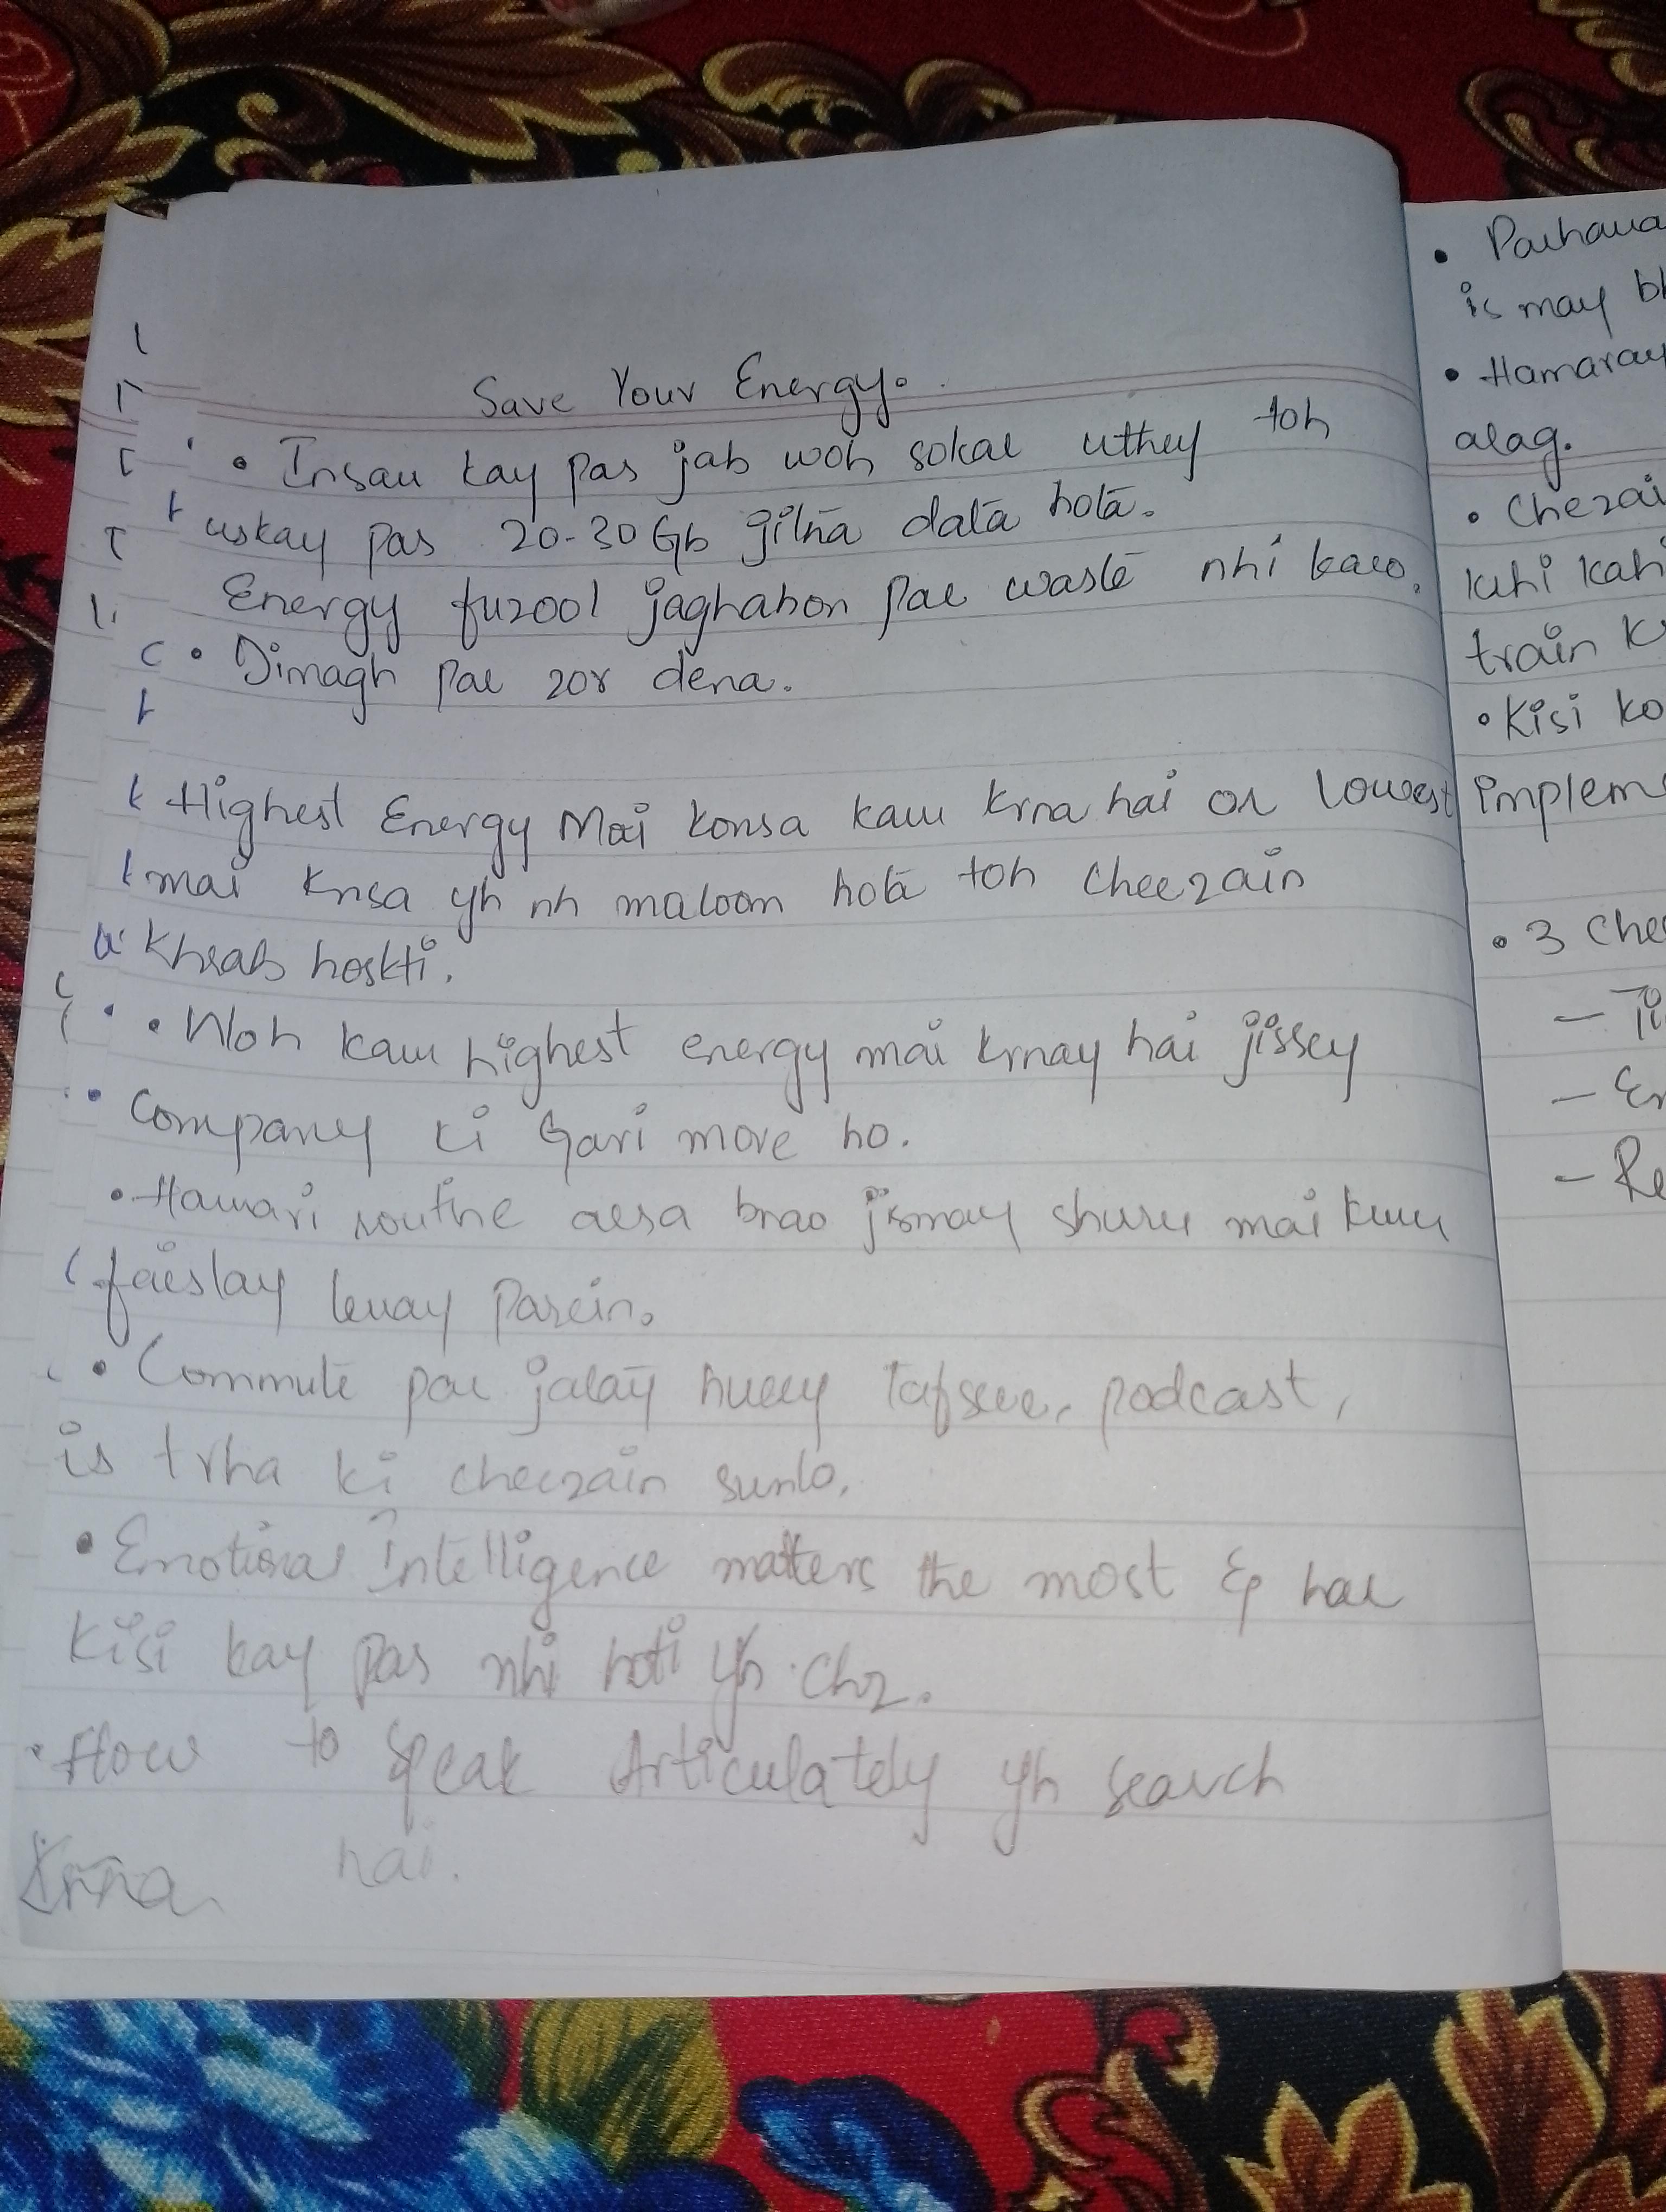 Save Your Energy.
• Insan kay pas jab woh sokar uthey toh
uskay pas 20-30 Gb jitna data hota.
Energy fuzool jaghahon par waste nhi karo.
• Dimagh par zor dena.
Highest Energy Mai konsa kam krna hai or lowest
mai knsa yh nh maloom hota toh cheezain
khrab hoskti.
• Woh kam highest energy mai krnay hai jissey
company ki Gari move ho.
• Hamari routine aesa bnao jismay shuru mai kum
faislay lenay parein.
• Commute par jatay huey Tafseer, podcast,
is trha ki cheezain sunlo.
• Emotional Intelligence matters the most & har
kisi kay pas nhi hoti yh chz.
• How to Speak Articulately yh search
krna hai.
•
is may
• Hamaray
alag.
•
train
• Kisi ko
• 3